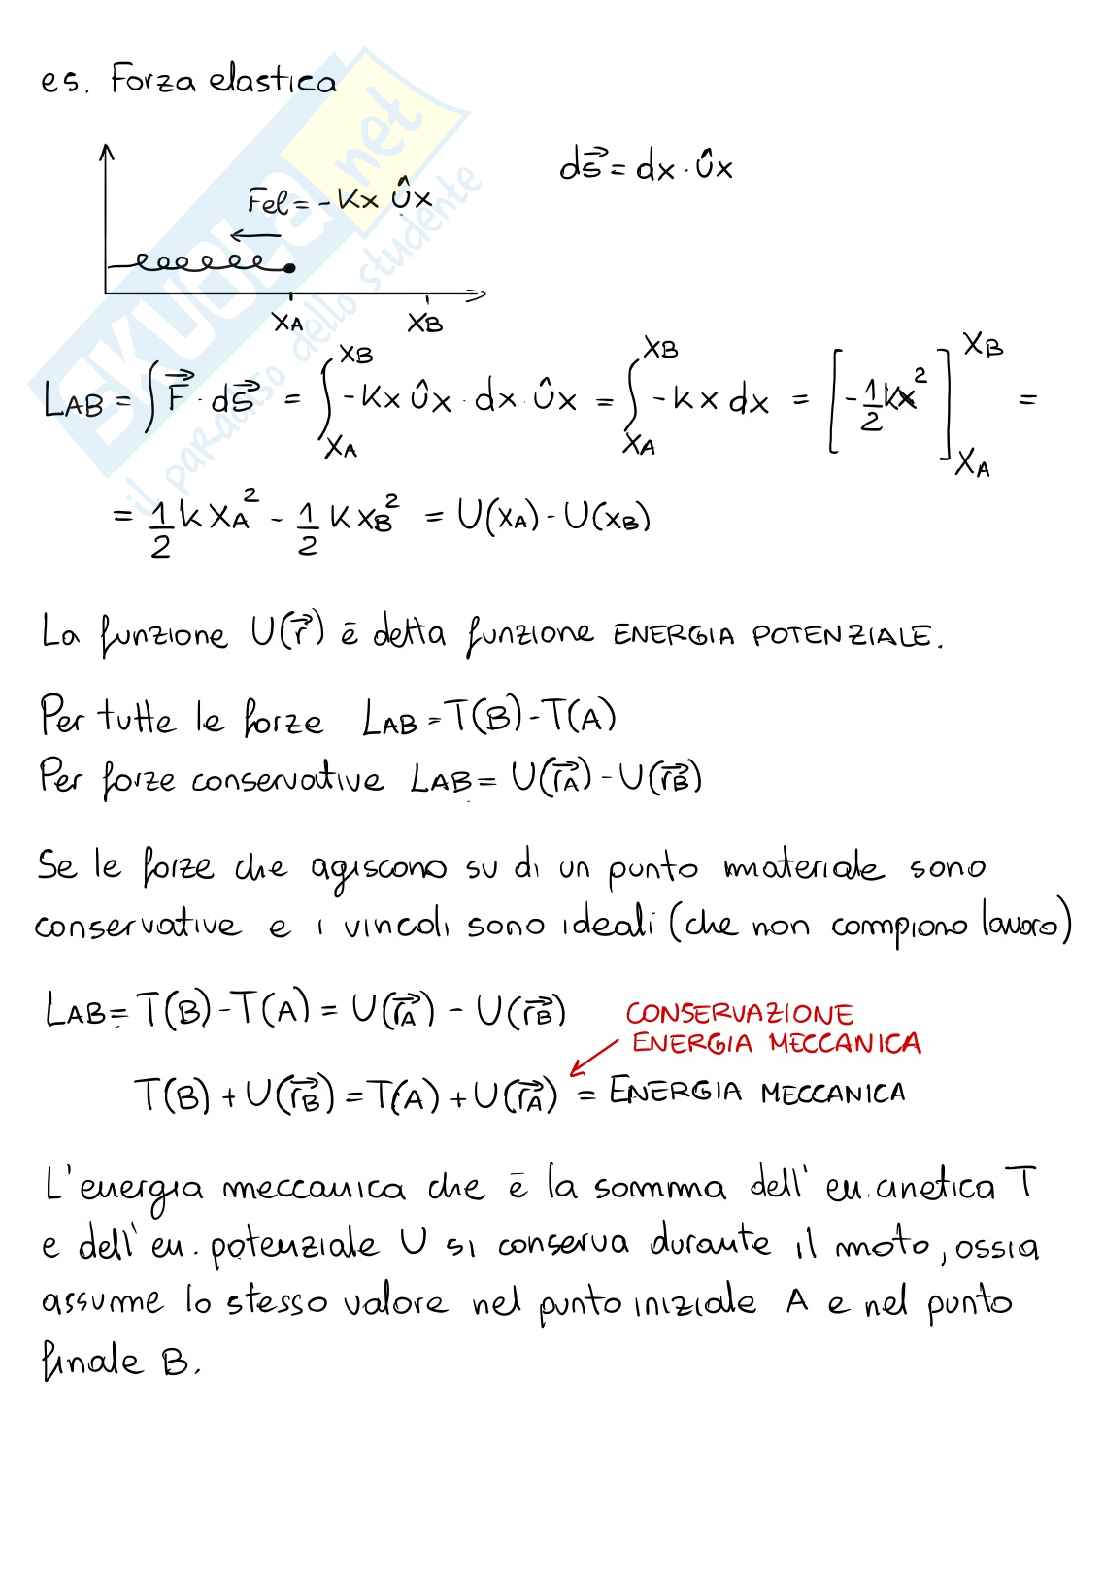 es. Forza elastica
ds⃗ = dx · ûx
Fel = - Kx ûx
xA xB
LAB = ∫ F⃗ · ds⃗ = ∫_{xA}^{xB} -Kx ûx · dx · ûx = ∫_{xA}^{xB} -kx dx = [-1/2 kx²]_{xA}^{xB} =
= 1/2 k xA² - 1/2 k xB² = U(xA) - U(xB)
La funzione U(r⃗) ē detta funzione ENERGIA POTENZIALE.
Per tutte le forze LAB = T(B) - T(A)
Per forze conservative LAB = U(r⃗A) - U(r⃗B)
Se le forze che agiscono su di un punto materiale sono
conservative e i vincoli sono ideali (che non compiono lavoro)
LAB = T(B) - T(A) = U(r⃗A) - U(r⃗B)
CONSERVAZIONE
ENERGIA MECCANICA
T(B) + U(r⃗B) = T(A) + U(r⃗A) = ENERGIA MECCANICA
L'energia meccanica che ē la somma dell'en. cinetica T
e dell'en. potenziale U si conserva durante il moto, ossia
assume lo stesso valore nel punto iniziale A e nel punto
finale B.
SKUOLA.net
il paradiso dello studente